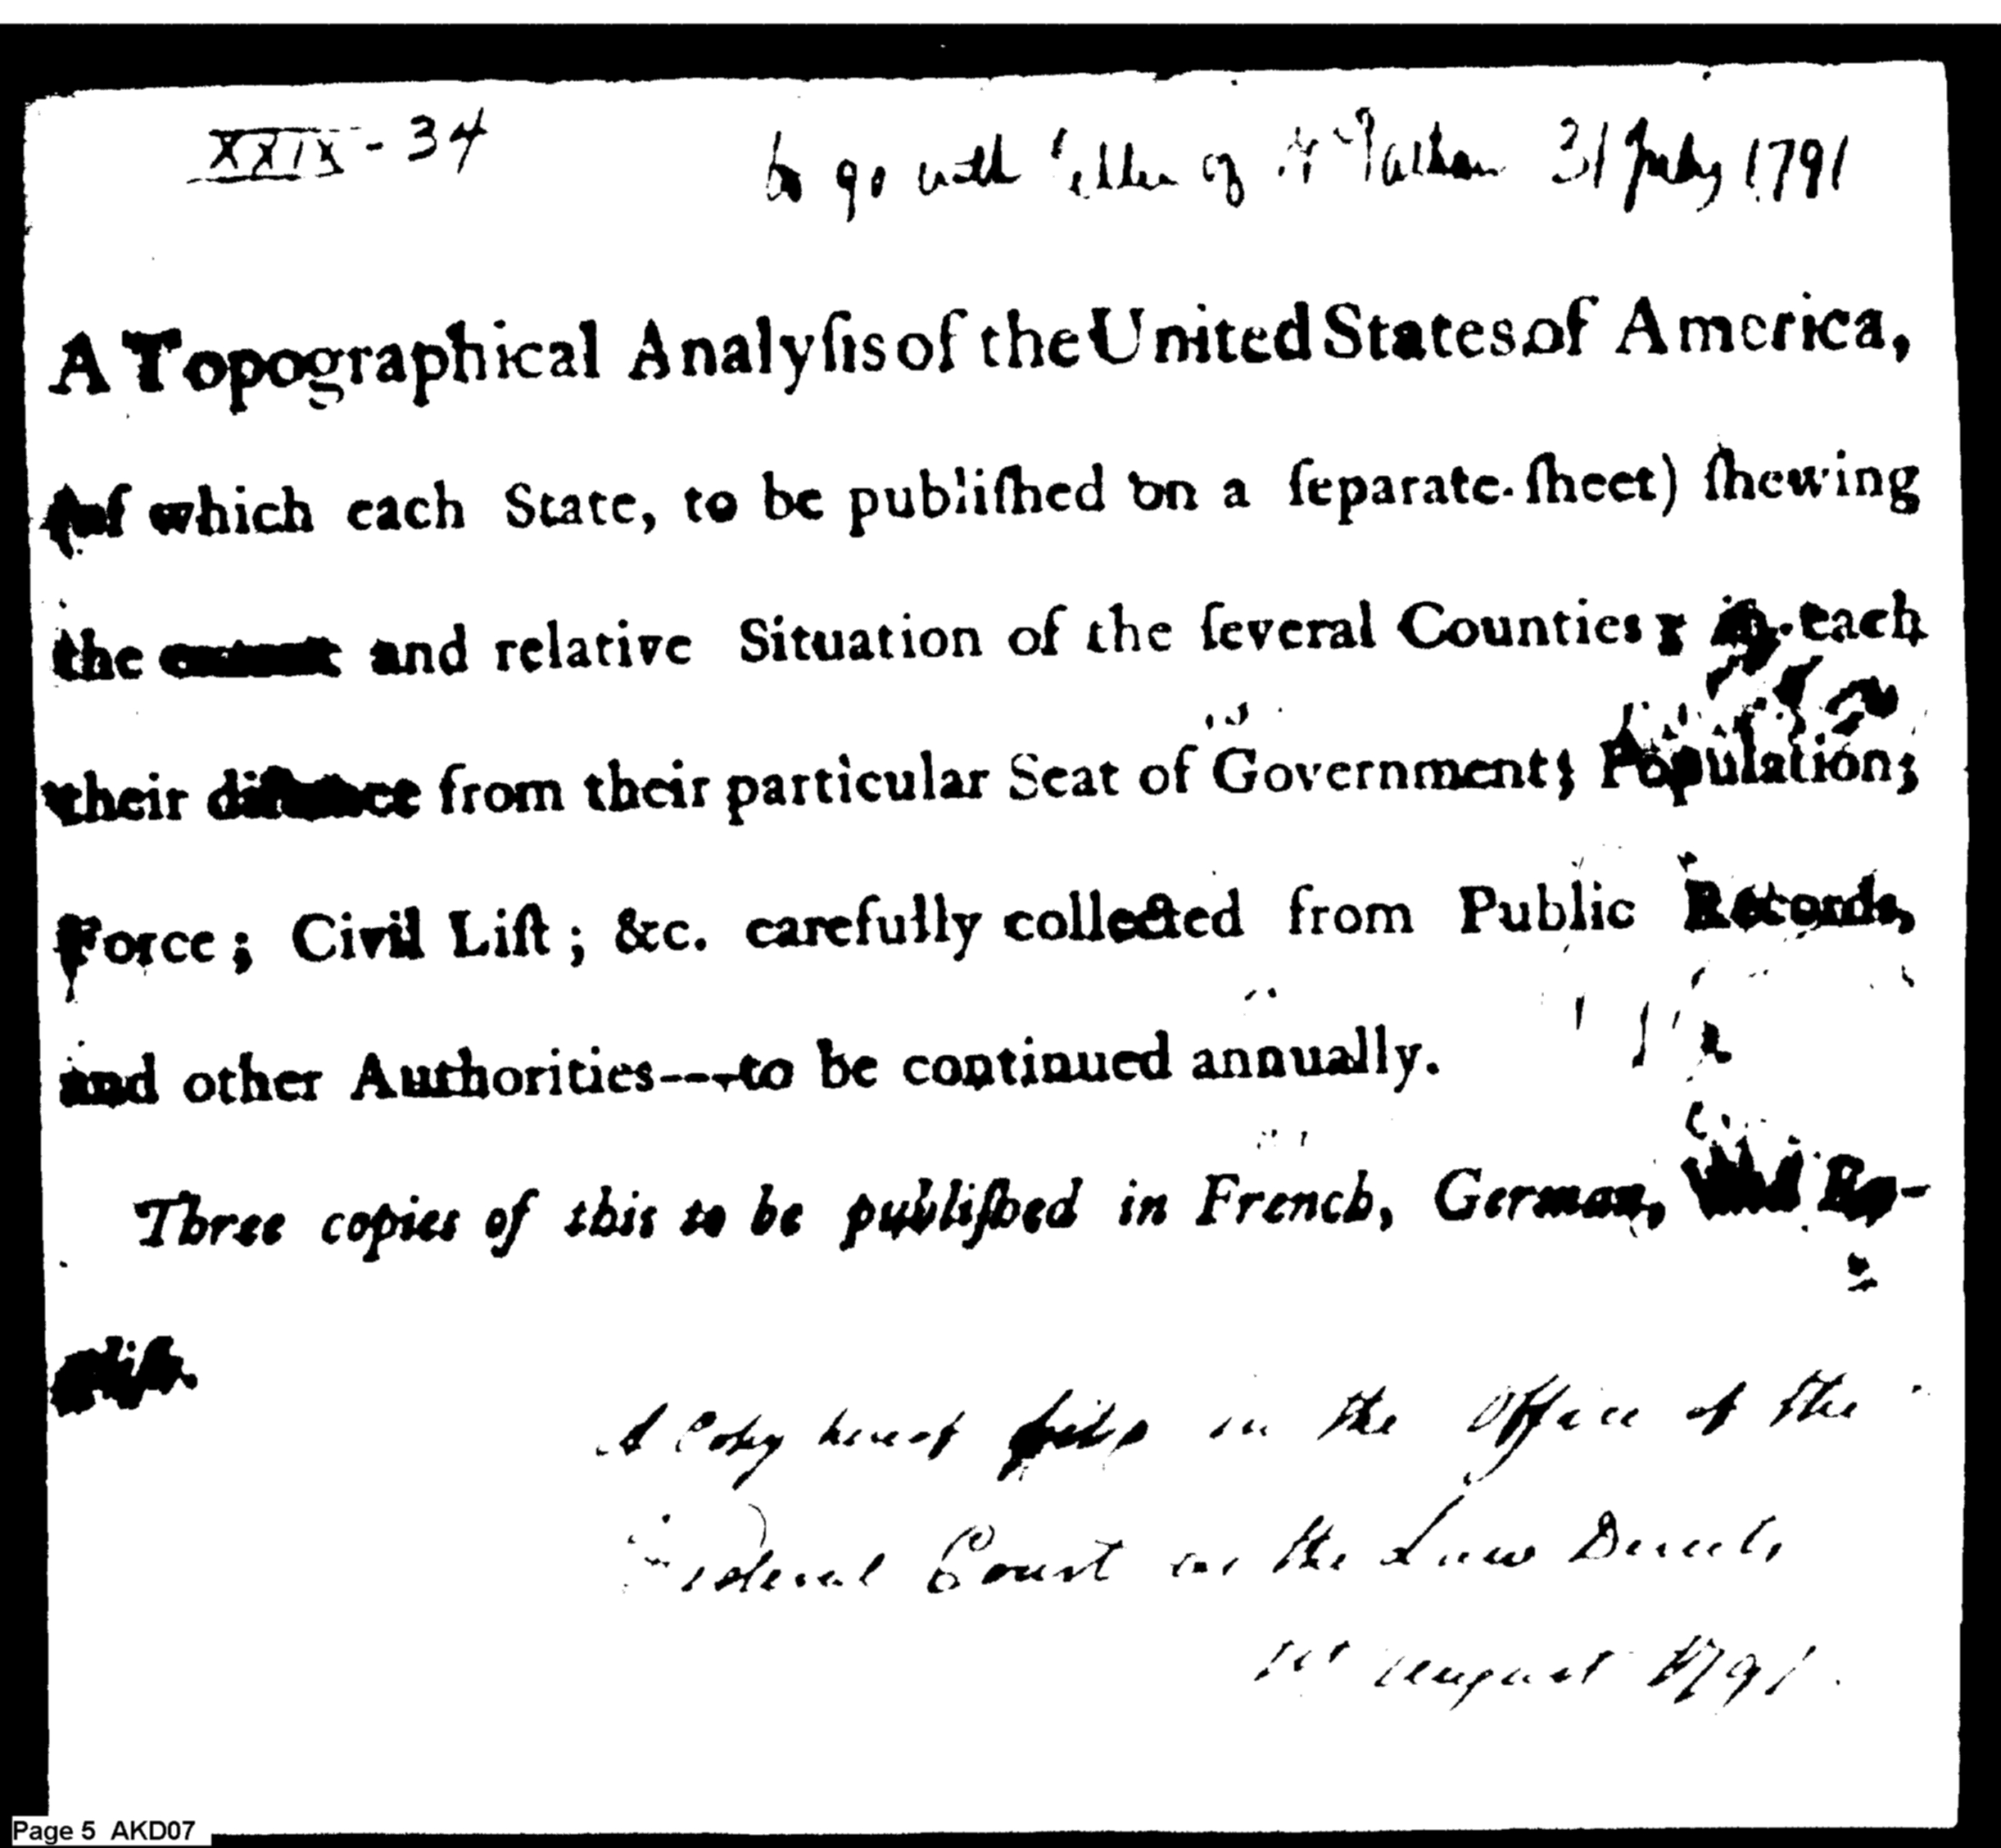 XXIX - 34
to go with letter of 31 July 1791
A Topographical Analyſis of the United States of America,
(of which each State, to be publiſhed on a ſeparate ſheet) ſhewing
the extent and relative Situation of the ſeveral Counties; in each
their diſtance from their particular Seat of Government; Population;
Force; Civil Liſt; &c. carefully collected from Public Records,
and other Authorities---to be continued annually.
Three copies of this to be publiſhed in French, German, and En-
gliſh.
A Copy hereof filed in the Office of the
Federal Court as the Law Directs
1st August 1791.
Page 5 AKD07